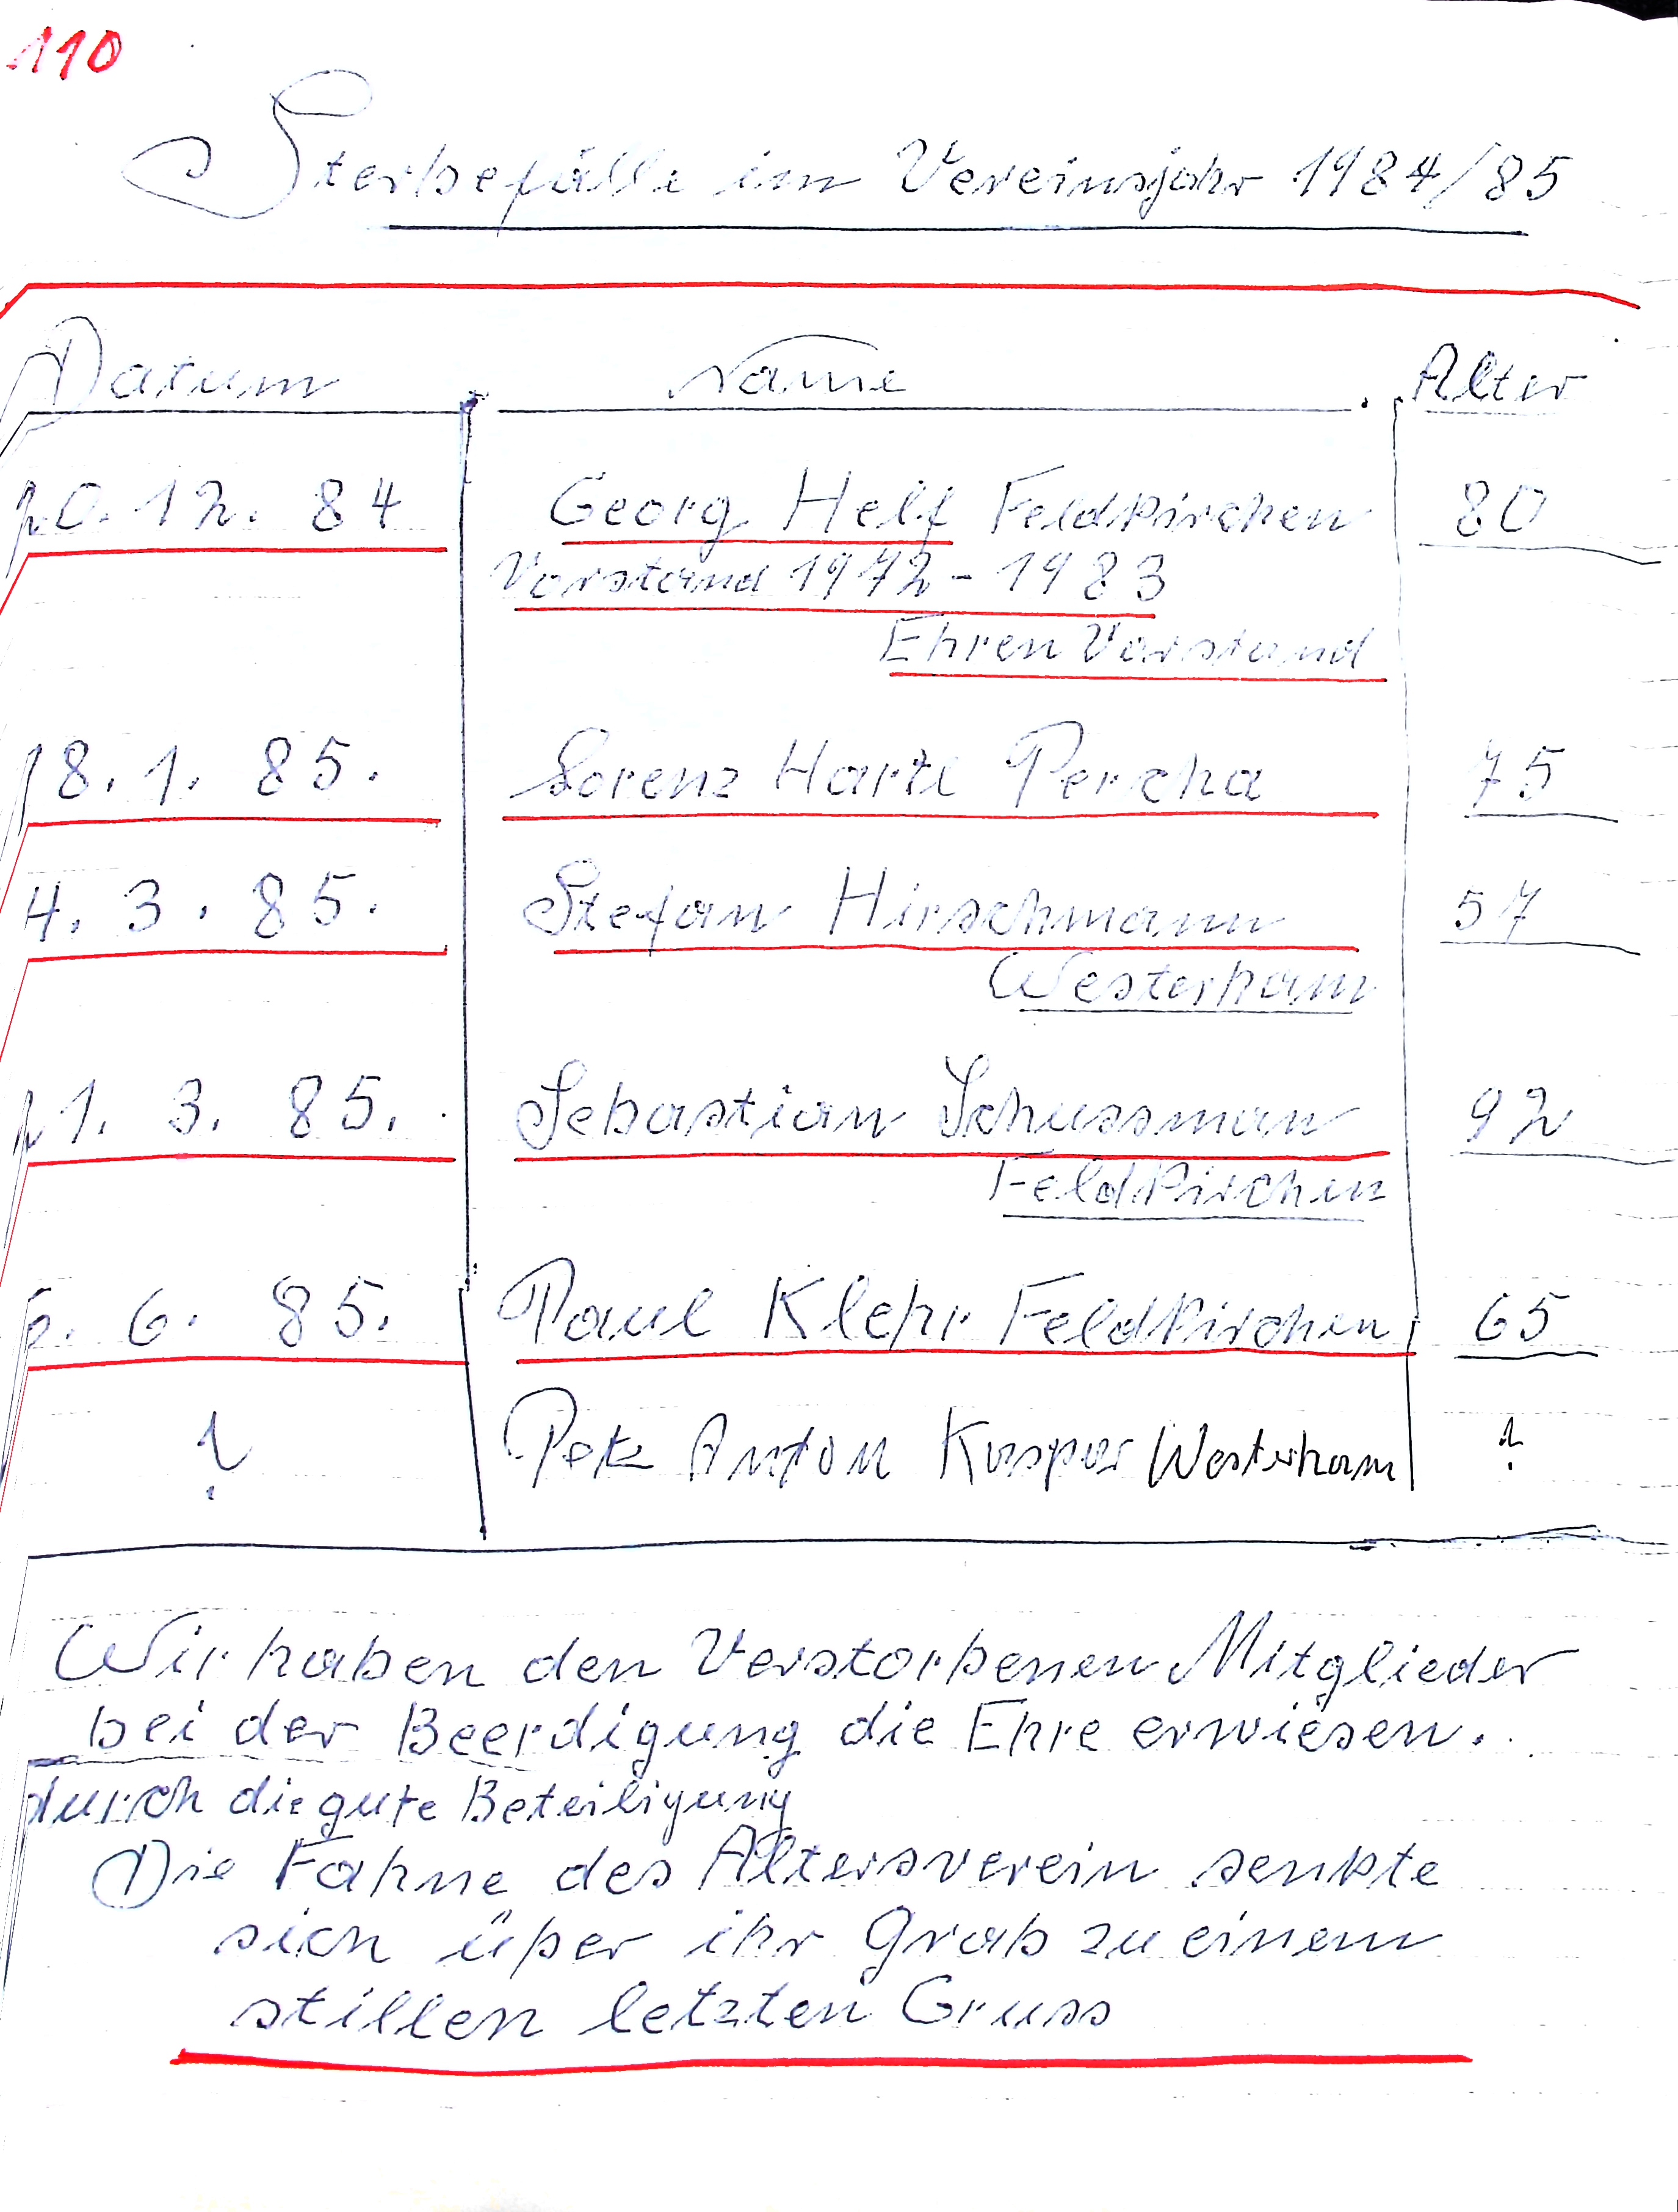 110
Sterbefälle im Vereinsjahr 1984/85
Datum Name Alter
20. 12. 84 Georg Helf Feldkirchen 80
Vorstand 1972 - 1983
Ehren Vorstand
18. 1. 85. Lorenz Hartl Percha 75
4. 3. 85. Stefan Hirschmann 57
Westerham
21. 3. 85. Sebastian Schussman 92
Feldkirchen
6. 85. Paul Klehr Feldkirchen 65
? Petz Anton Kaspar Westerham ?
Wir haben den Verstorbenen Mitglieder
bei der Beerdigung die Ehre erwiesen.
durch die gute Beteiligung
Die Fahne des Altersverein senkte
sich über ihr Grab zu einem
stillen letzten Gruss